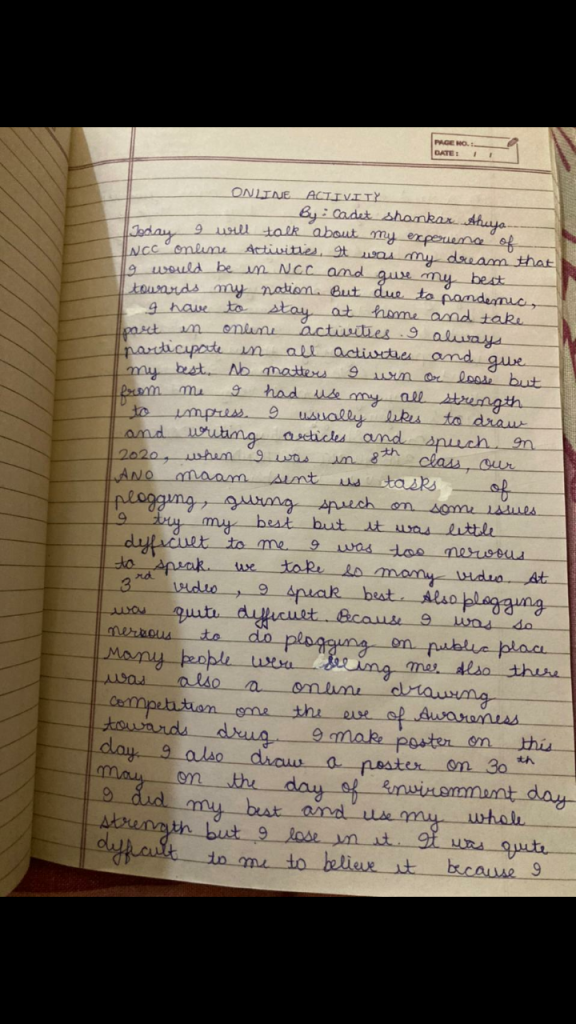 PAGE NO.:
DATE: / /
ONLINE ACTIVITY
By: Cadet Shankar Ahuja
Today I will talk about my experience of
NCC online Activities. It was my dream that
I would be in NCC and give my best
towards my nation. But due to pandemic,
I have to stay at home and take
part in online activities. I always
participate in all activities and give
my best. No matters I win or loose but
from me I had use my all strength
to impress. I usually likes to draw
and writing articles and speech. In
2020, when I was in 8th class, our
ANO maam sent us tasks of
plogging, giving speech on some issues
I try my best but it was little
difficult to me. I was too nervous
to speak. we take so many video. At
3rd video, I speak best. Also plogging
was quite difficult. Because I was so
nervous to do plogging on public place
Many people were seeing me. Also there
was also a online drawing
competition one the eve of Awareness
towards drug. I make poster on this
day. I also draw a poster on 30th
May on the day of Environment day
I did my best and use my whole
strength but I lose in it. It was quite
difficult to me to believe it because I